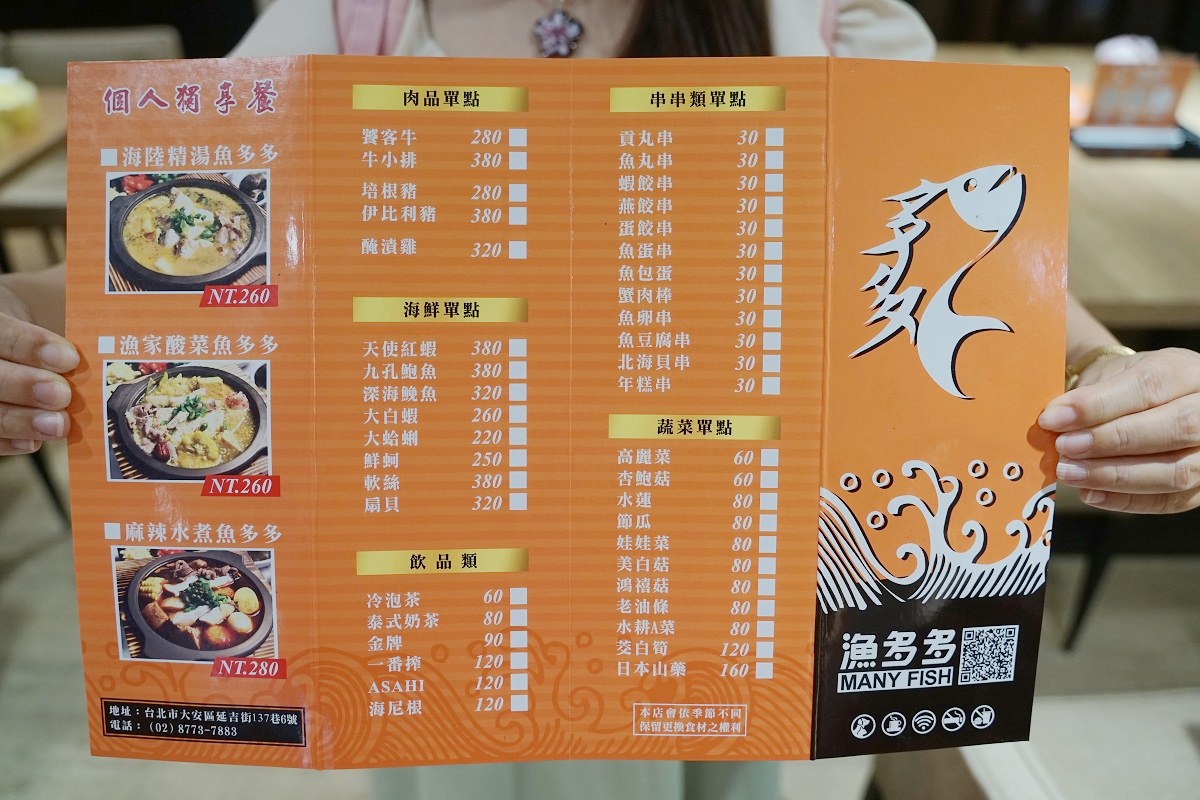 個人獨享餐
海陸精湯魚多多
NT.260
漁家酸菜魚多多
NT.260
麻辣水煮魚多多
NT.280
地址：台北市大安區延吉街137巷6號
電話：(02) 8773-7883
肉品單點
饕客牛 280
牛小排 380
培根豬 280
伊比利豬 380
醃漬雞 320
海鮮單點
天使紅蝦 380
九孔鮑魚 380
深海鮸魚 320
大白蝦 260
大蛤蜊 220
鮮蚵 250
軟絲 380
扇貝 320
飲品類
冷泡茶 60
泰式奶茶 80
金牌 90
一番搾 120
ASAHI 120
海尼根 120
串串類單點
貢丸串 30
魚丸串 30
蝦餃串 30
燕餃串 30
蛋餃串 30
魚蛋串 30
魚包蛋 30
蟹肉棒 30
魚卵串 30
魚豆腐串 30
北海貝串 30
年糕串 30
蔬菜單點
高麗菜 60
杏鮑菇 60
水蓮 80
節瓜 80
娃娃菜 80
美白菇 80
鴻禧菇 80
老油條 80
水耕A菜 80
茭白筍 120
日本山藥 160
本店會依季節不同
保留更換食材之權利
多多
漁多多
MANY FISH